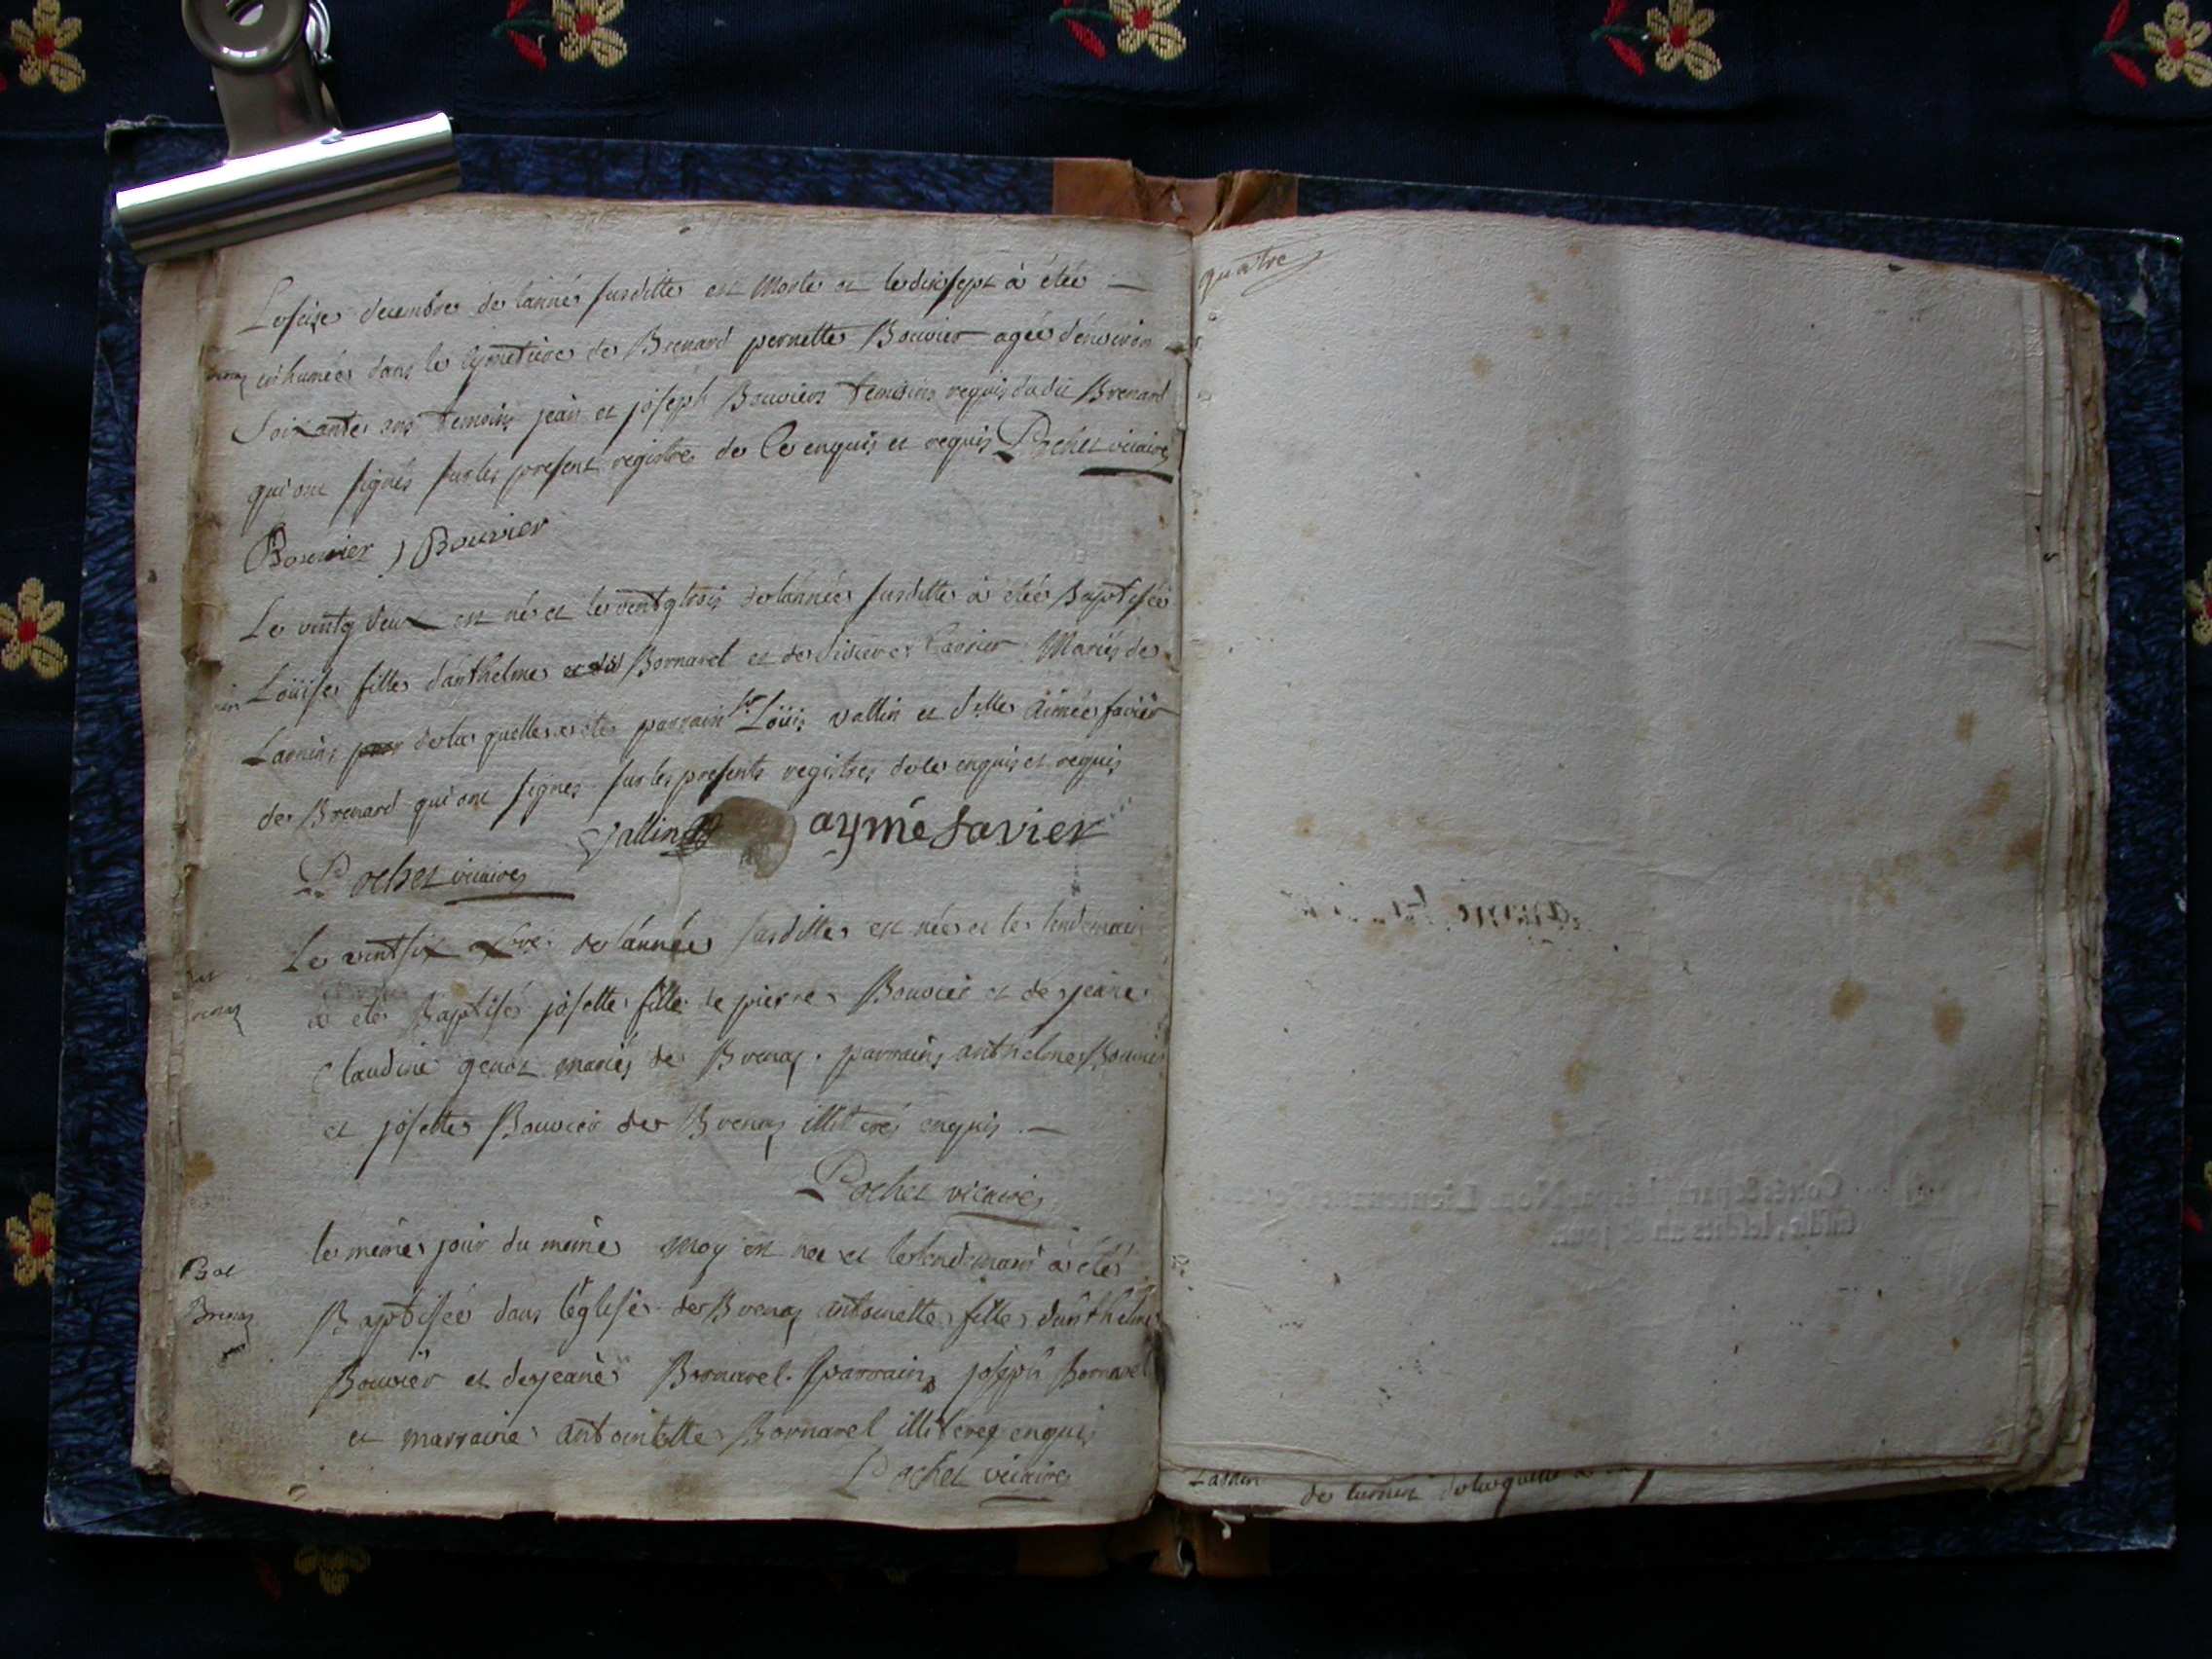 Le seize decembre de lanné susditte est Morte et le dixsept à étée —
inhumée dans le cymetiere de Brenard pernette Bouvier agée d'environ
Soixante ans temoins jean et joseph Bouviers temoins requis dudit Brenard
qui ont signés sur les present registre de Ce enquis et requis Pochet vicaire
Bouvier J Bouvier
Le vintg deux est né et le ventgtrois de lannée susditte à étée Baptisée
Loüise fille d'anthelme Bornarel et de Marié de
de la quelle a été parrain sr Loüis vallin et dlle Aimée favier
de Brenard qui ont signés sur les presents registres de ce enquis et requis
Vallin aymé favier
Pochet vicaire
Le vintsix xbre de lannée susditte est née et le lendemain
à eté Baptisé josette fille de pierre Bouvier et de jeane
Claudine genot mariés de Brenaz . parrains anthelme Bouvier
et josette Bouvier de Brenaz illiterés enquis . —
Pochet vicaire
le même jour du même moy est nee et le lendemain à été
Bat
Brenaz
Baptisée dans l'église de Brenaz antoinette fille d'anthelme
Bouvier et de jeane Bornarel . parrain joseph Bornarel
et marraine antoinette Bornarel illiterez enquis
Pochet vicaire
quatre
de la quelle a